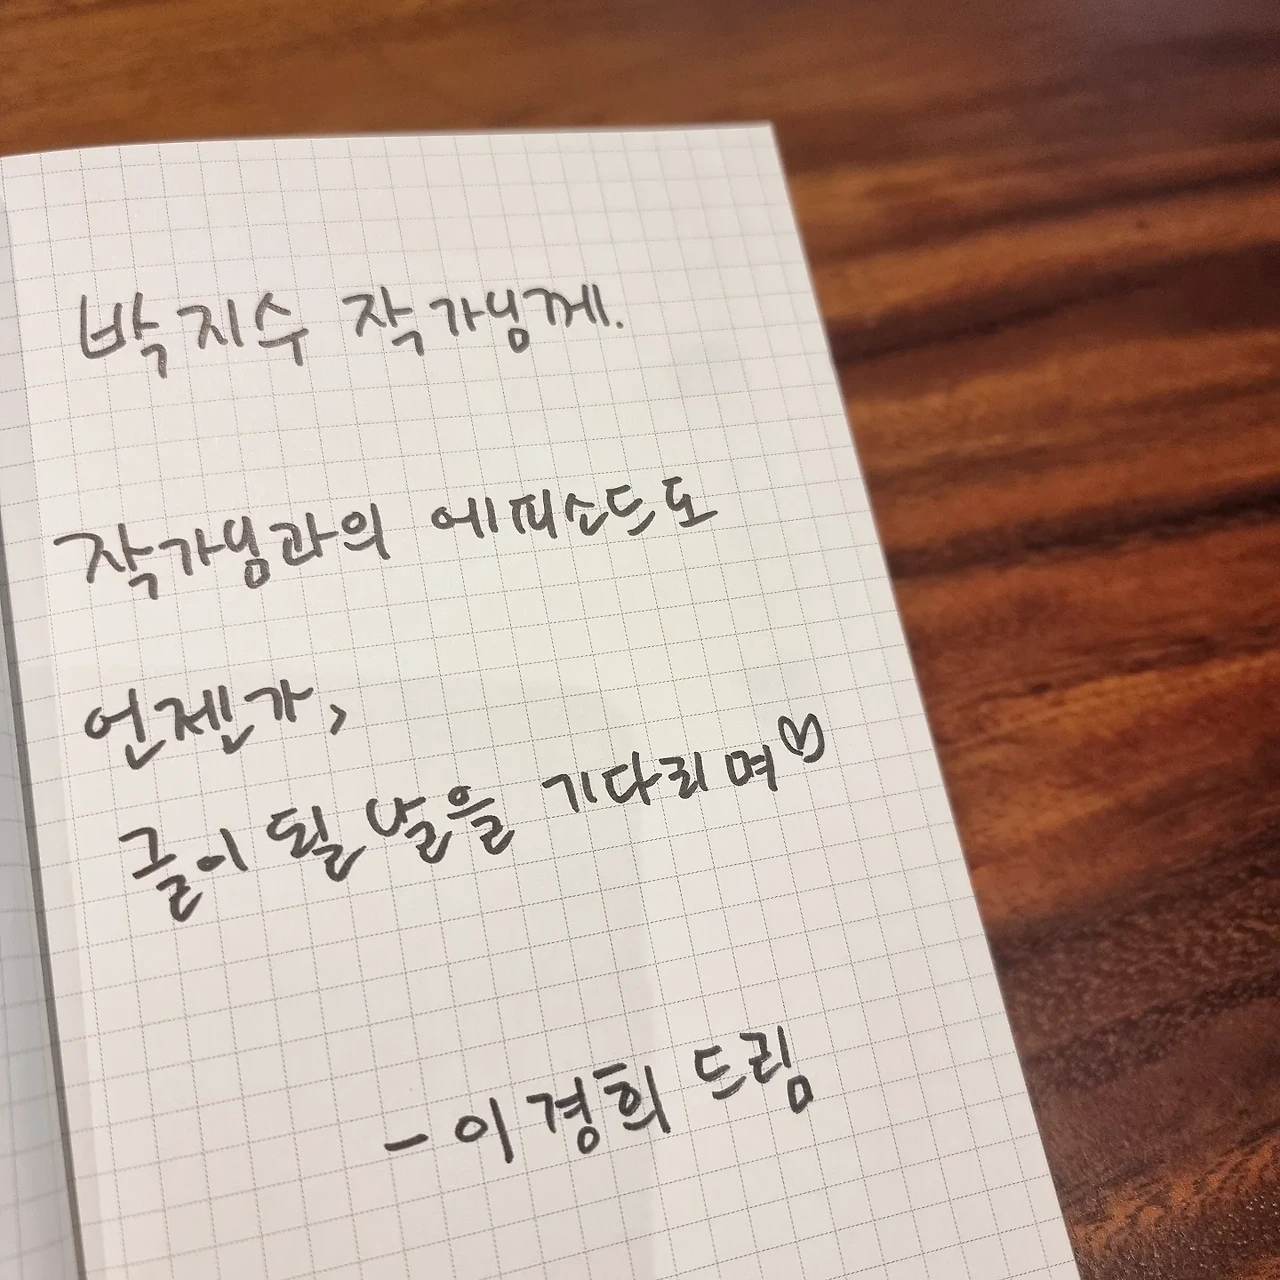 박지수 작가님께.
작가님과의 에피소드도
언젠가,
글이 될 날을 기다리며♡
- 이경희 드림